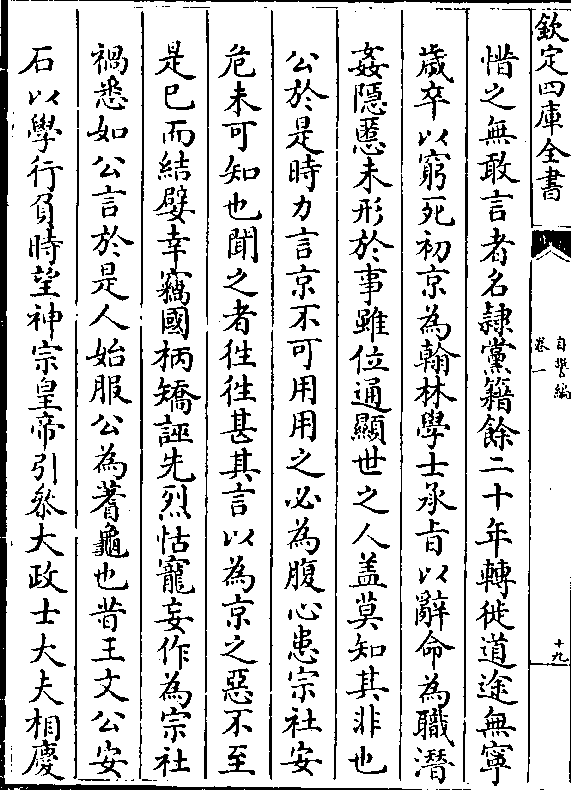 欽定四庫全書
自警編
卷一
十九
惜之無敢言者名隷黨籍餘二十年轉徙道途無寧
歳卒以窮死初京為翰林學士承旨以辭命為職潛
姦隱慝未形於事雖位通顯世之人盖莫知其非也
公於是時力言京不可用用之必為腹心患宗社安
危未可知也聞之者徃徃甚其言以為京之惡不至
是已而結嬖幸竊國柄矯誣先烈怙寵妄作為宗社
禍悉如公言於是人始服公為蓍龜也昔王文公安
石以學行負時望神宗皇帝引叅大政士大夫相慶